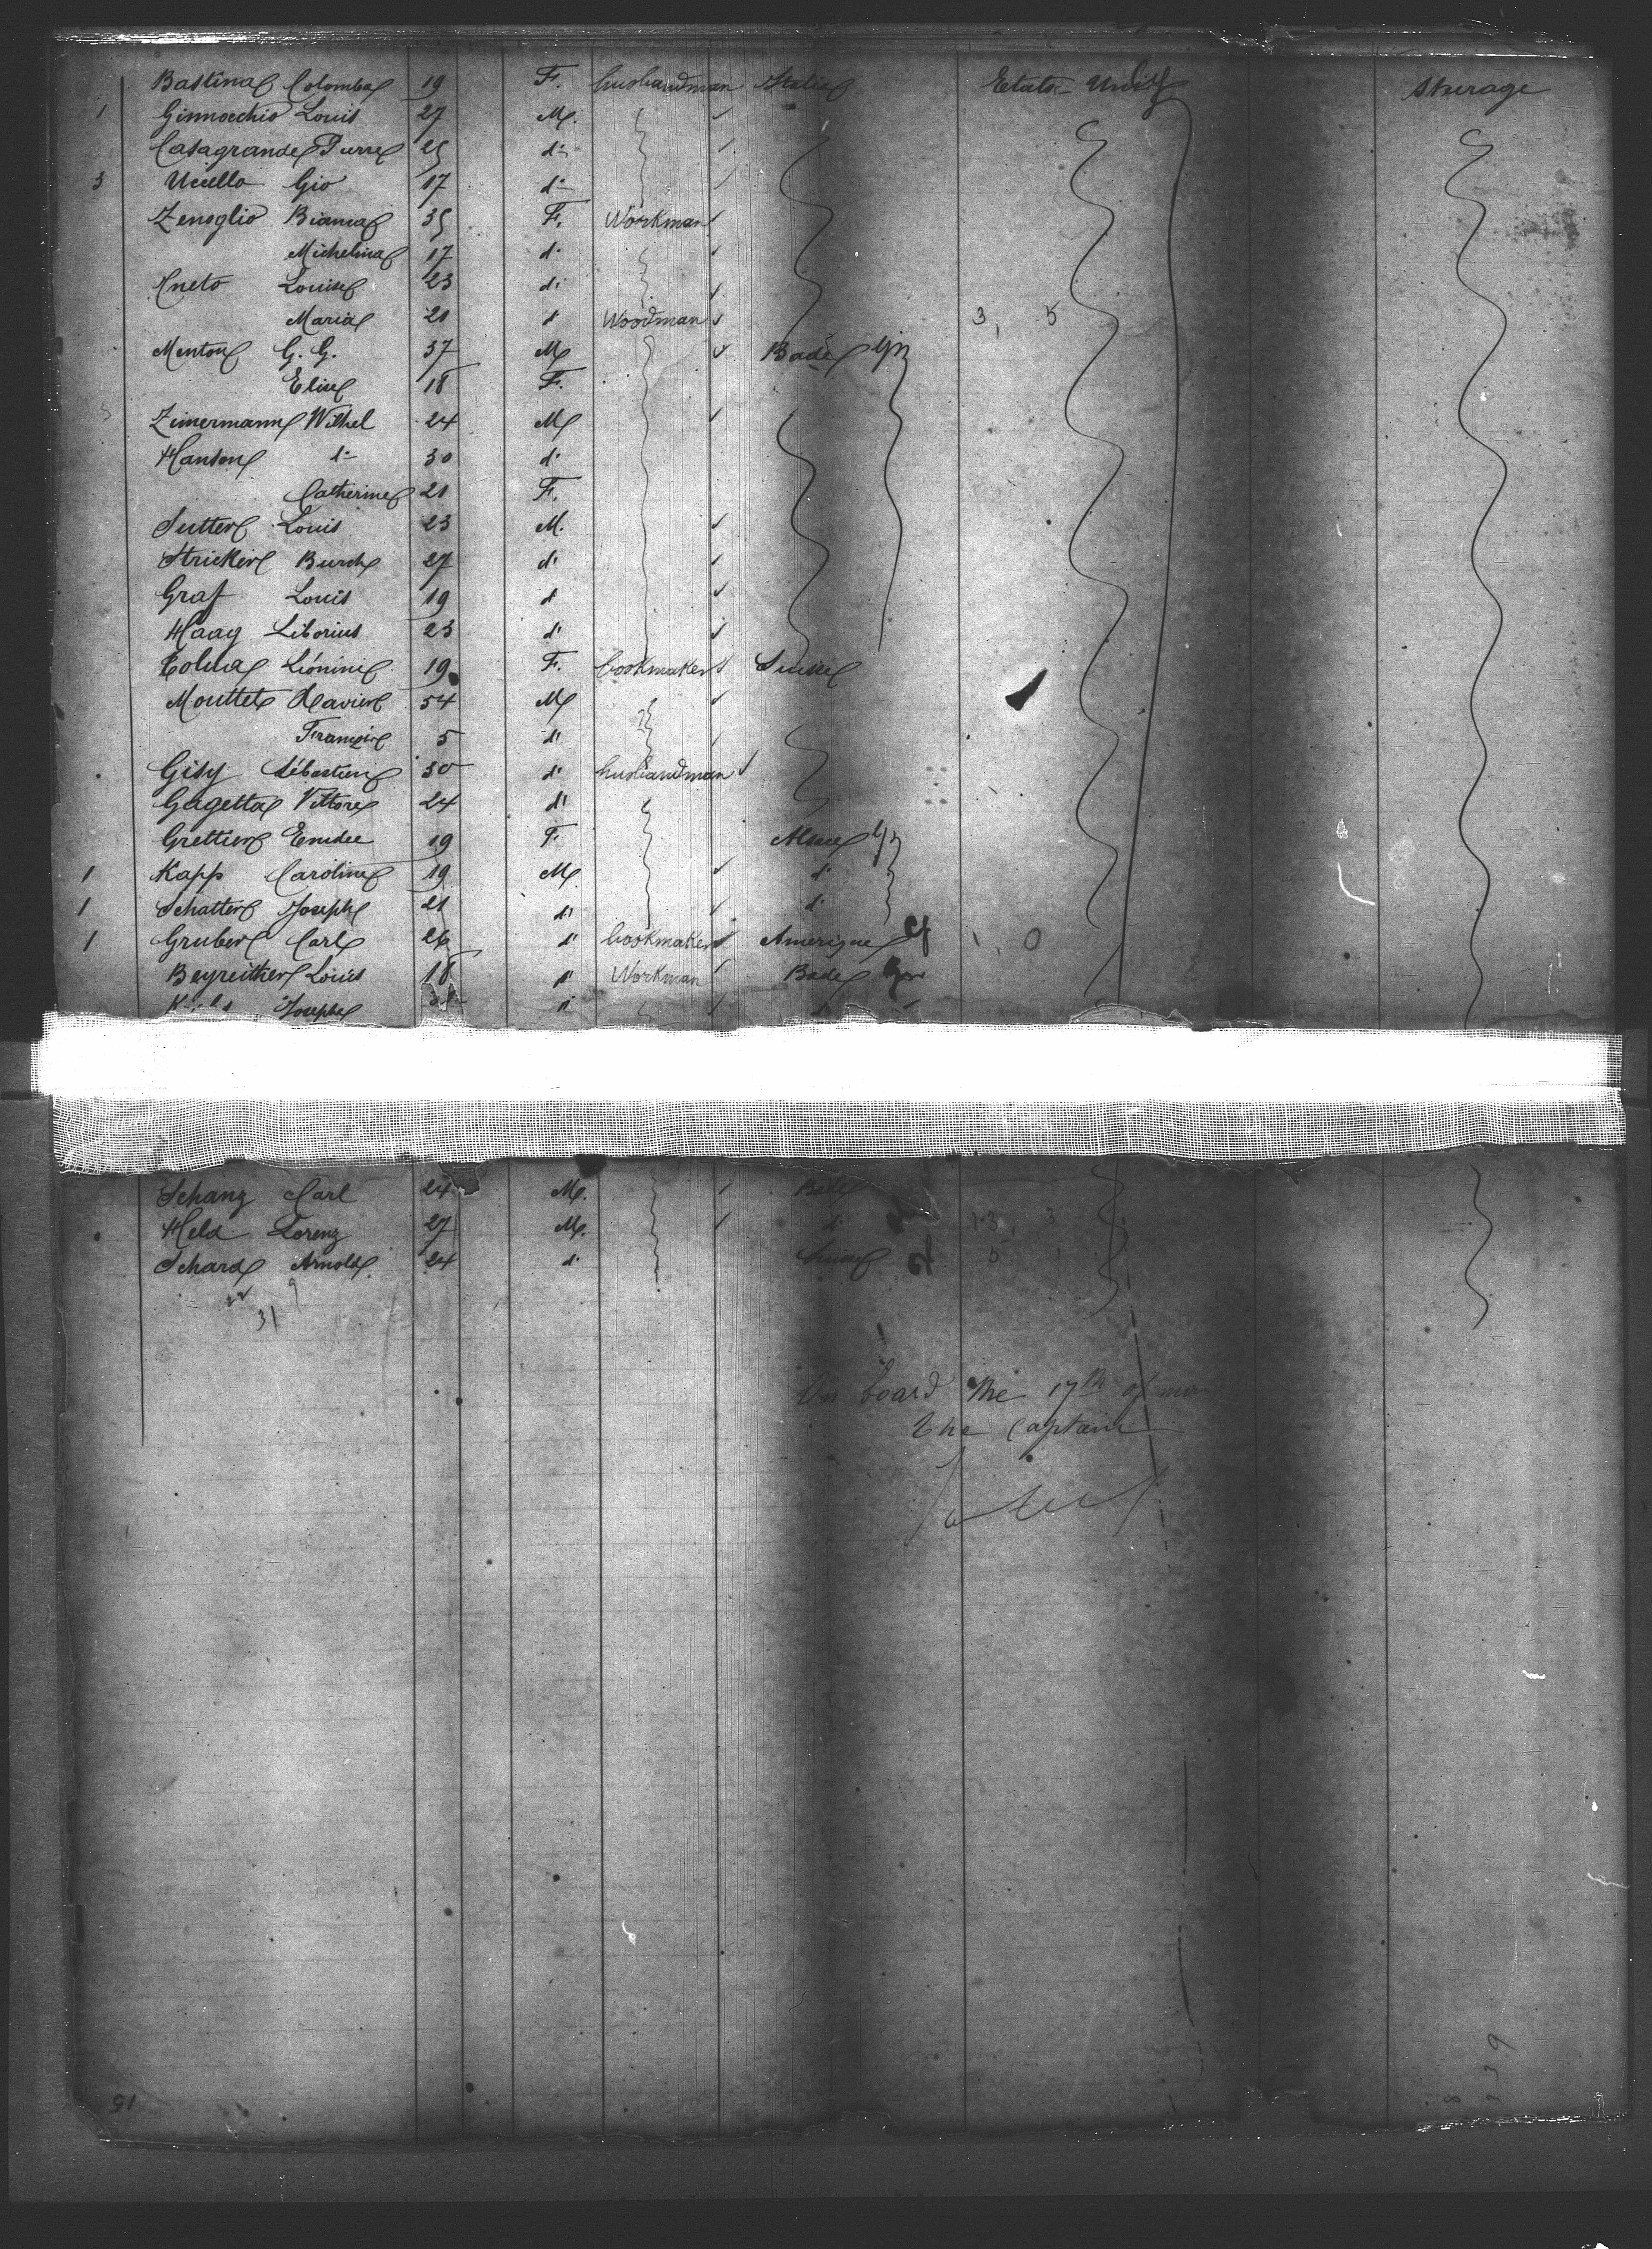 Bastina Colomba 19 F. husbandman Italie Etats-Unis Sturage
1 Ginnocchio Louis 27 M.
Casagrande Pierre 25 d°
3 Ucello Gio 17 d°
Zenoglio Bianca 35 F. Workman
Michelina 17 d°
Cneto Louise 23 d°
Maria 21 d° Woodman 3, 5
Menton G. G. 37 M Bade
Elise 18 F.
Zimermann Wilhel 24 M
Hanson d° 30 d°
Catherine 21 F.
Sutter Louis 23 M.
Stricker 27 d°
Graf Louis 19 d°
Haag Liborius 23 d°
Léonine 19 F. bookmaker Suisse
Mouttet Xavier 54 M
5 d°
Gisy Sébastien 30 d° husbandman
Gagetta Vittore 24 d°
Grettier 19 F. Alsace
1 Kapp Caroline 19 M. d°
1 Schatter Joseph 21 d° d°
1 Gruber Carl 26 d° bookmaker Amerique 1, 0
Beyreither Louis 18 d° Workman Bade
Joseph d°
Schanz Carl 24 M. Bade
Held Lorenz 27 M. d° 13, 3
Schard Arnold 24 d° Suisse 5
22 9
31
On board the 17th of
the Captain
239